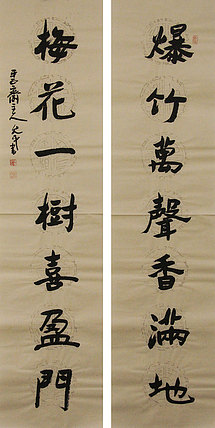 爆竹萬聲香滿地
梅花一樹喜盈門